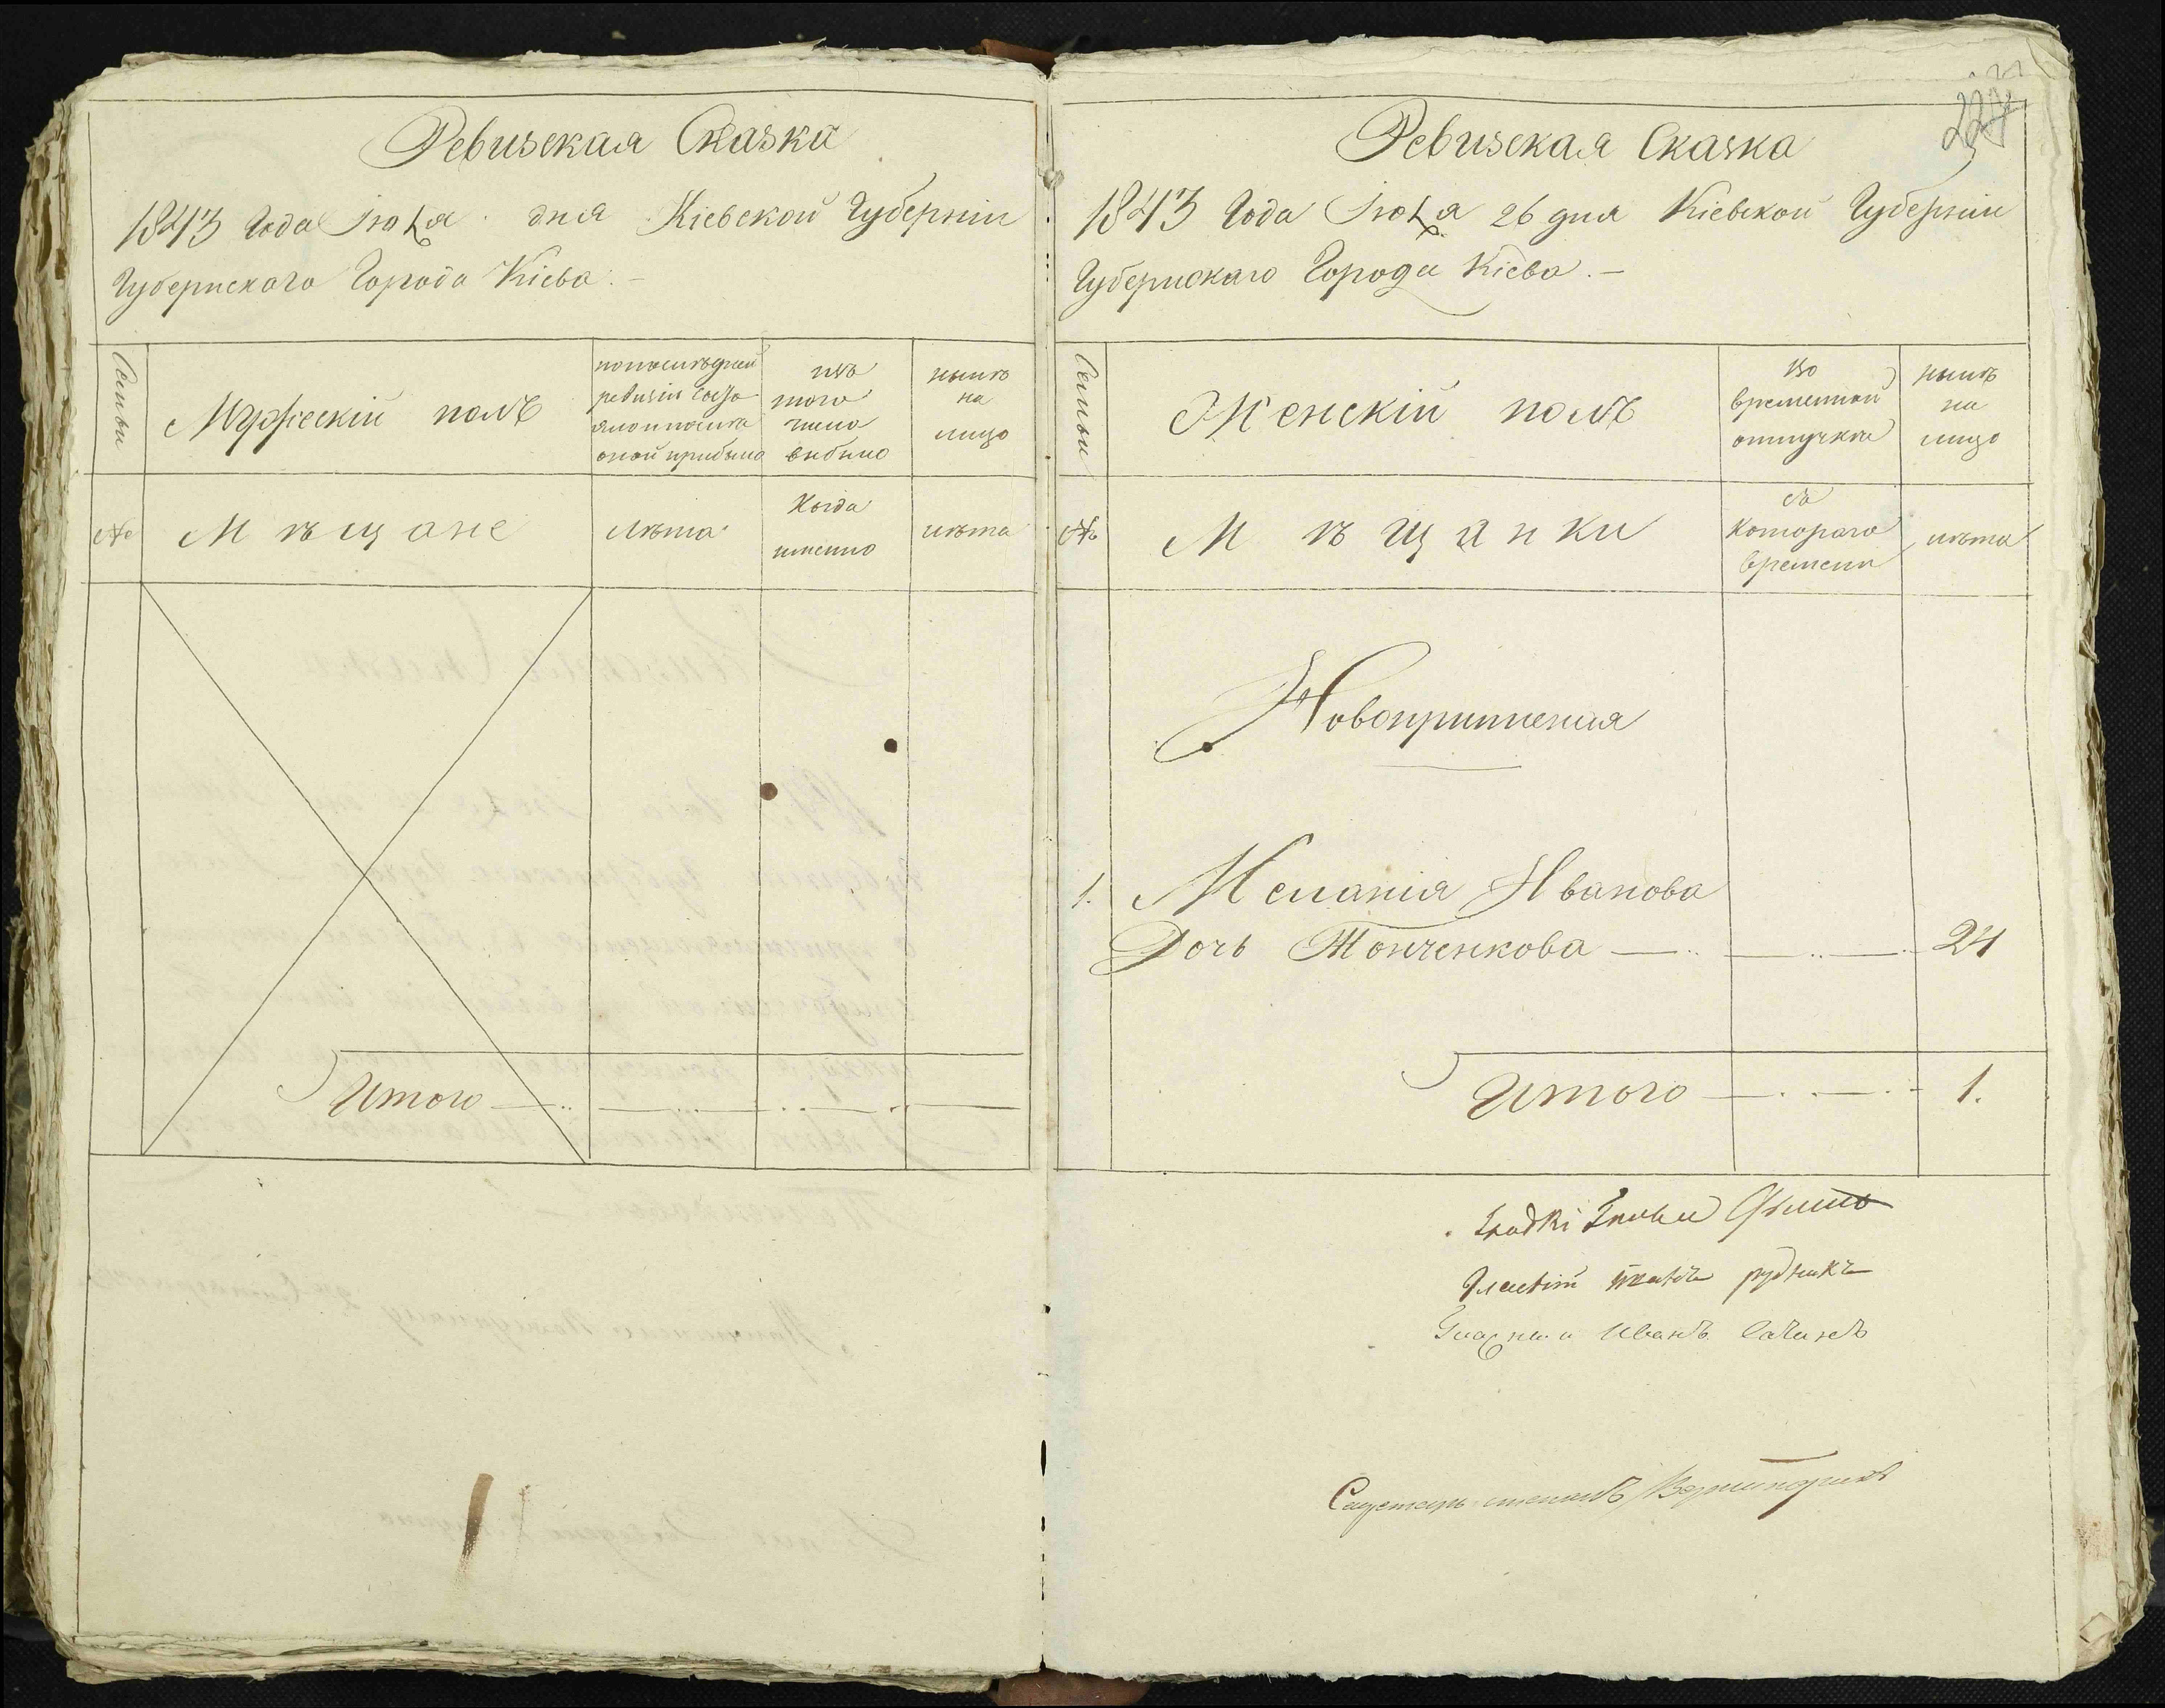 Ревизская Сказка
1843 Года Iюля дня Кіевской Губерніи
Губернскаго Города Кіева. —
Семьи
Мужескій полъ
по последней
ревизіи состо
яло и после
оной прибыло
изъ
того
числа
выбыло
ныне
на
лицо
№
Мѣщане
лѣта
Когда
именно
лѣта
Итого
227
Ревизская Сказка
1843 Года Iюля 26 дня Кіевской Губерніи
Губернскаго Города Кіева. —
Семьи
Женскій полъ
во
временной
отлучке
ныне
на
лицо
№
Мѣщанки
съ
котораго
времени
лѣта
Новопришлая
1. Меланія Иванова
Дочь Тонченкова — 24
Итого — 1.
Иванъ